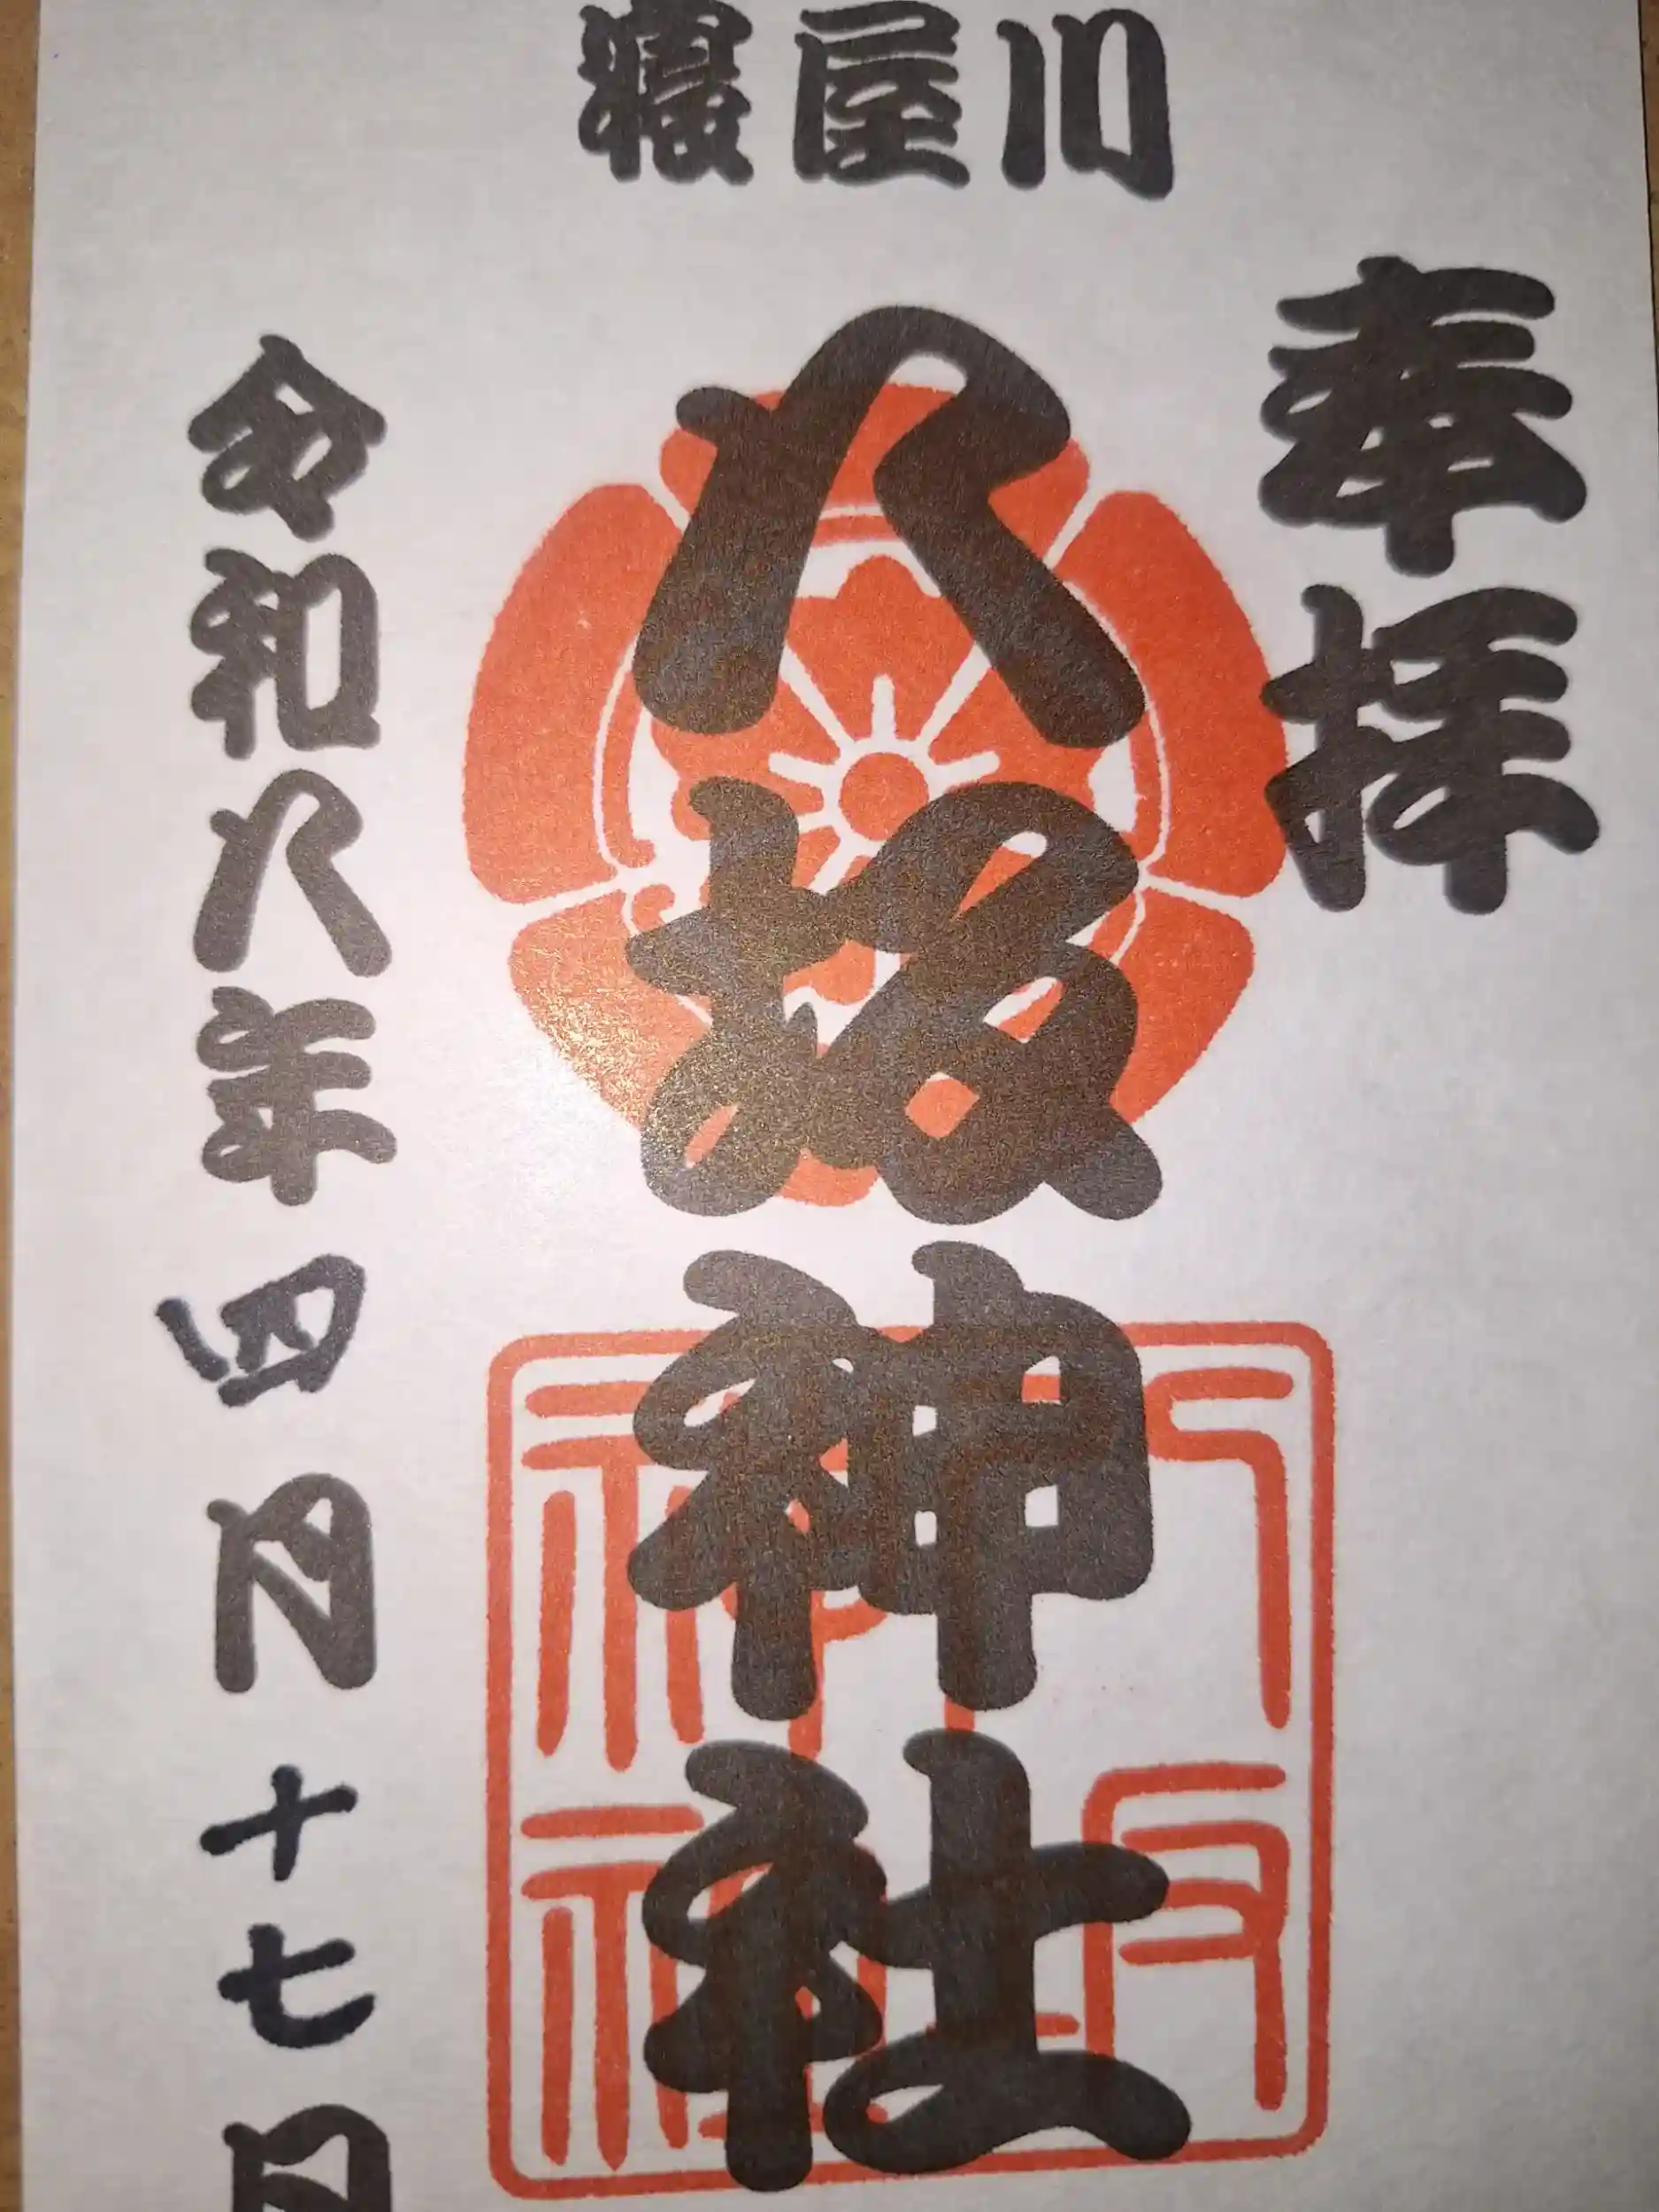 寝屋川
奉拝
八坂神社
八坂神社
令和八年四月十七日